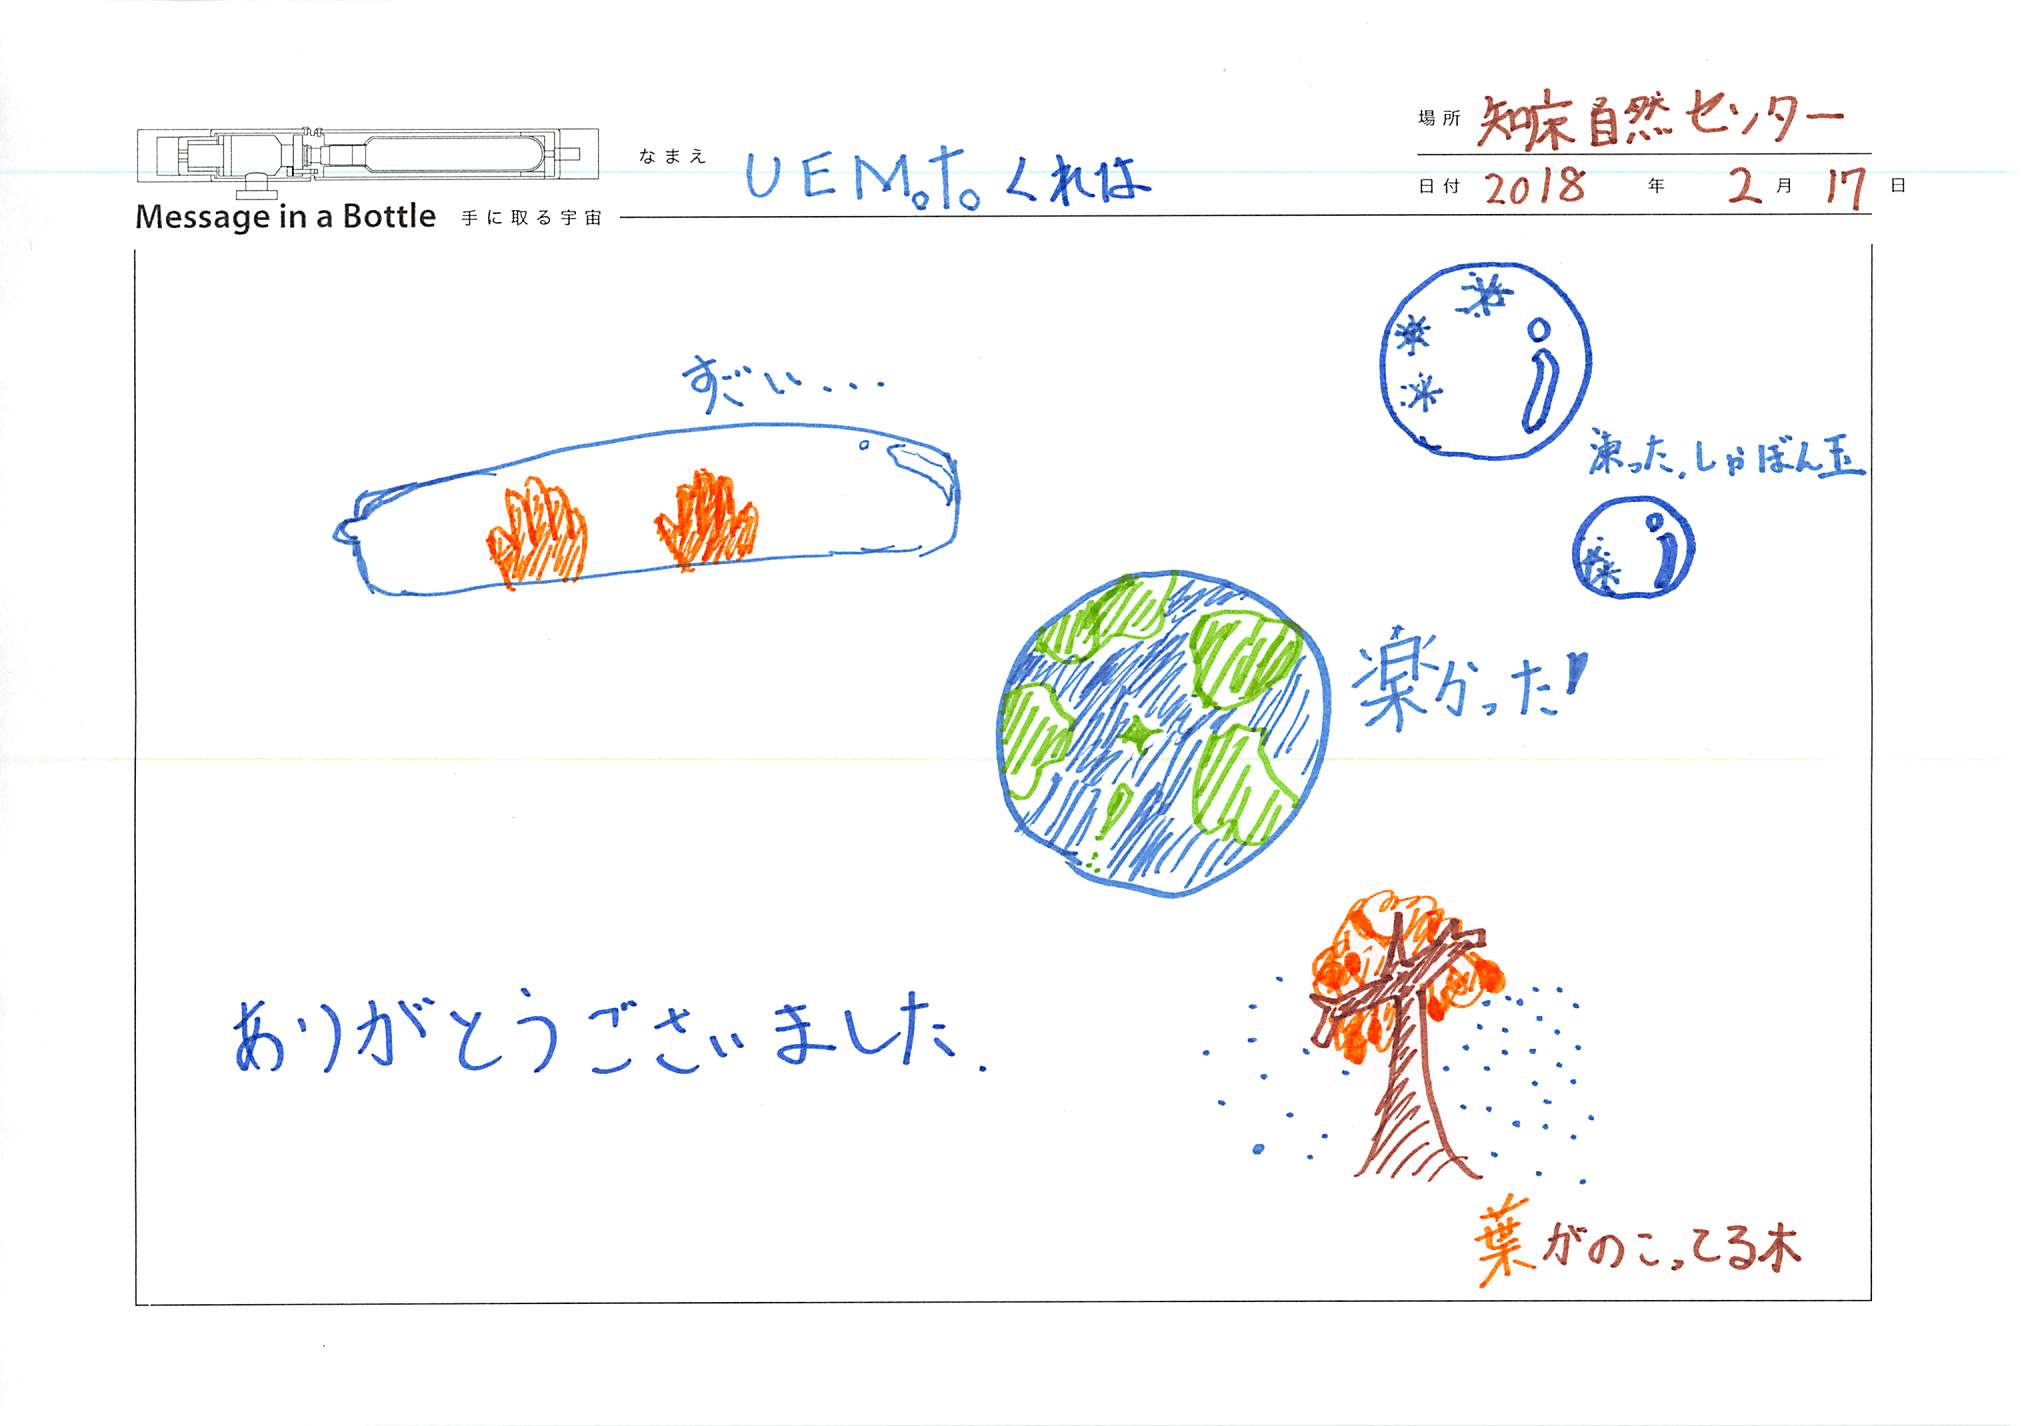 場所 知床自然センター
なまえ UEMoTo くれは
日付 2018 年 2 月 17 日
Message in a Bottle 手に取る宇宙
すごい...
凍った.しゃぼん玉
楽かった!
ありがとうございました.
葉がのこってる木